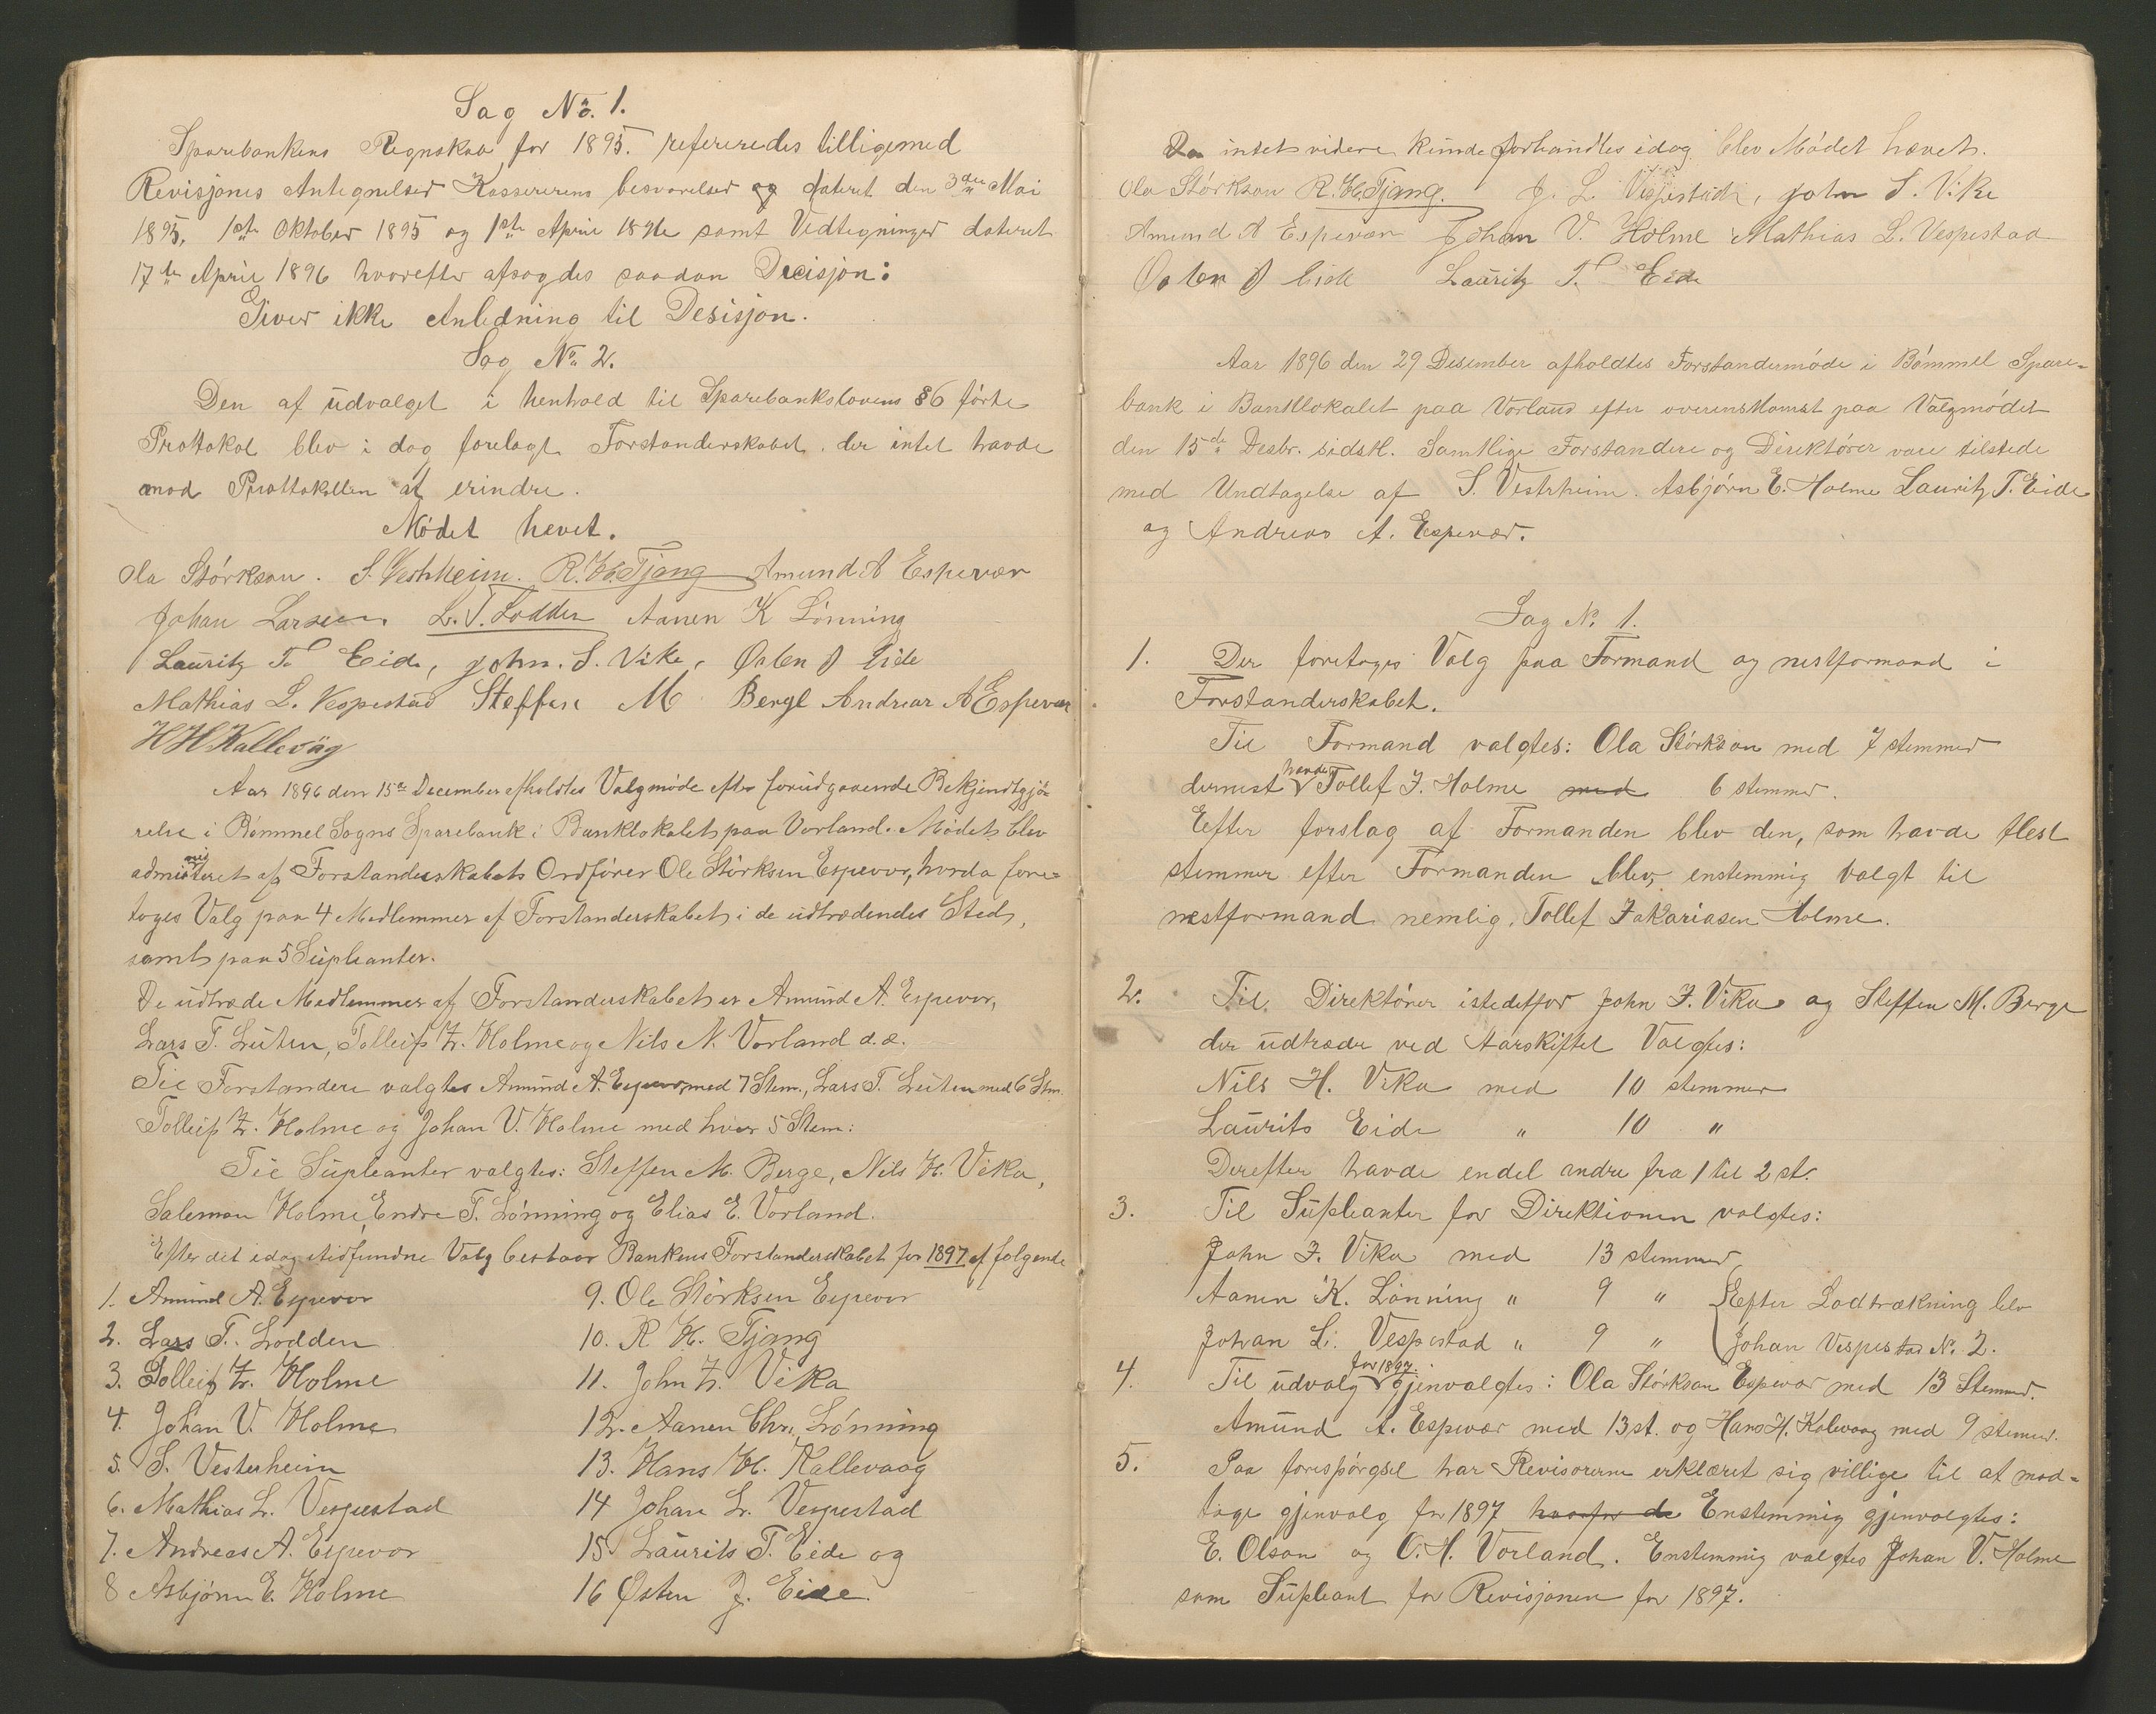 Sag No. 1.
Sparebankens Regnskab for 1895. refereredes tilligemed
Revisjones Antegnelser Kassererens besvarelser og dateret den 3die Mai
1895, 1ste Oktober 1895 og 1ste April 1896 samt Vedtegninger dateret
17de April 1896 hvorefter afsagdes saadan Decisjon:
Giver ikke Anledning til Desisjon.
Sag No 2.
Den af udvalget i henhold til Sparebankslovens §6 förte
Prottokol blev i dag forelagt Forstanderskabet. der intet havde
mod Prottokollen at erindre.
Mödet hevet.
Ola Störkson. S. Vestrheim. R. H. Tjong Amund A Espevær
Johan Larsen L. T. Lodden Aanen K Lönning
Lauritz T. Eide, John. S. Vike, Østen J Eide
Mathias L. Vespestad Steffen M Berge Andreas A Espevær
H H Kallevåg
Aar 1896 den 15de December afholdtes Valgmöde efter forudgaaende Bekjendtgjö-
relse i Bömmel Sogns Sparebank i Banklokalet paa Vorland. Mödet blev
administeret af Forstanderskabets Ordförer Ole Störksen Espevær, hvorda fore-
toges Valg paa 4 Medlemmer af Forstanderskabet i de udtrædendes Sted,
samt paa 5 Supleanter.
De udtræde Medlemmer af Forstanderskabet er Amund A. Espevær,
Lars T. Luten, Tolleif Z. Holme og Nils N. Vorland d.æ.
Til Forstandere valgtes Amund A. Espevær med 7 Stem., Lars T. Luten med 6 Stm.
Tolleif Z. Holme og Johan V. Holme med hver 5 Stem:
Til Supleanter valgtes: Steffen M. Berge, Nils H. Vika,
Salemon Holme, Endre T. Lönning og Elias E. Vorland.
Efter det idag stedfundne Valg bestaar Bankens Forstanderskabet for 1897 af følgende
1. Amund A. Espevær
2. Lars T. Lodden
3. Tolleif Z. Holme
4. Johan V. Holme
5. S. Vesterheim
6. Mathias L. Vespestad
7. Andreas A. Espevær
8 Asbjörn E. Holme
9. Ole Störksen Espevær
10. R H. Tjong
11. John Z. Vika
12. Aanen Chr. Lönning
13. Hans H. Kallevaag
14 Johan L. Vespestad
15 Laurits T. Eide og
16 Østen J. Eide.
Da intet videre kunde forhandles idag blev Mödet hævet.
Ola Störkson R. H. Tjong. J. L. Vespestad, John S. Vike
Amund A Espevær Johan V. Holme Mathias L. Vespestad
Østen J Eide Lauritz T. Eide
Aar 1896 den 29 Desember afholdtes Forstandermöde i Bömmel Spare-
bank i Banklokalet paa Vorland efter overenskomst paa Valgmödet
den 15de Desbr. sidstl. Samtlige Forstandere og Direktörer vare tilstede
med Undtagelse af S. Vestrheim. Asbjörn E. Holme Lauritz T. Eide
og Andreas A. Espevær.
Sag No 1.
1. Der foretoges Valg paa Formand og nestformand i
Forstanderskabet.
Til Formand valgtes: Ola Störkson med 7 stemmer
dernest havde Tollef Z. Holme med 6 stemmer.
Efter forslag af Formanden blev den, som havde flest
stemmer efter Formanden blev, enstemmig valgt til
nestformand nemlig. Tollef Zakariasen Holme.
2. Til Direktörer istedetfor John Z. Vika og Steffen M. Berge
der udtræde ved Aarskiftet Valgtes:
Nils H. Vika med 10 stemmer
Laurits Eide " 10 "
Derefter havde endel andre fra 1 til 2 st.
3. Til Supleanter for Direktionen valgtes:
John Z. Vika med 13 stemmer
Aanen K. Lönning " 9 " Efter Lodtrækning blev
Johan L. Vespestad " 9 " Johan Vespestad No. 2.
4. Til udvalg for 1897. gjenvalgtes: Ola Störkson Espevær med 13 Stemmer.
Amund A. Espevær med 13 st. og Hans H. Kalevaag med 9 stemmer.
5. Paa forespörgsel har Revisorerne erklæret sig villige til at mod-
tage gjenvalg for 1897 hvorfor de Enstemmig gjenvalgtes:
E. Olson og O. H. Vorland. Enstemmig valgtes Johan V. Holme
som Supleant for Revisjonen for 1897.